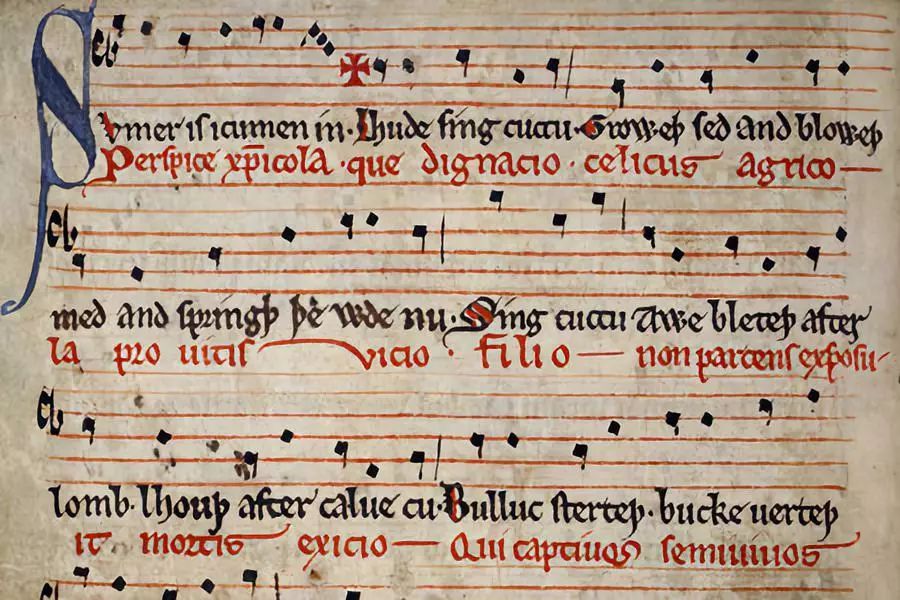 Svmer is icumen in· Lhude sing cuccu· Groweþ sed and bloweþ
Perspice xp̅icola· que dignacio· celicus agrico—
med and springþ þe wde nu· Sing cuccu Awe bleteþ after
la pro uitis vicio· filio— non parcens exposu-
lomb· lhouþ after calue cu· Bulluc sterteþ· bucke uerteþ
it mortis exicio— Qui captiuos semiuiuos